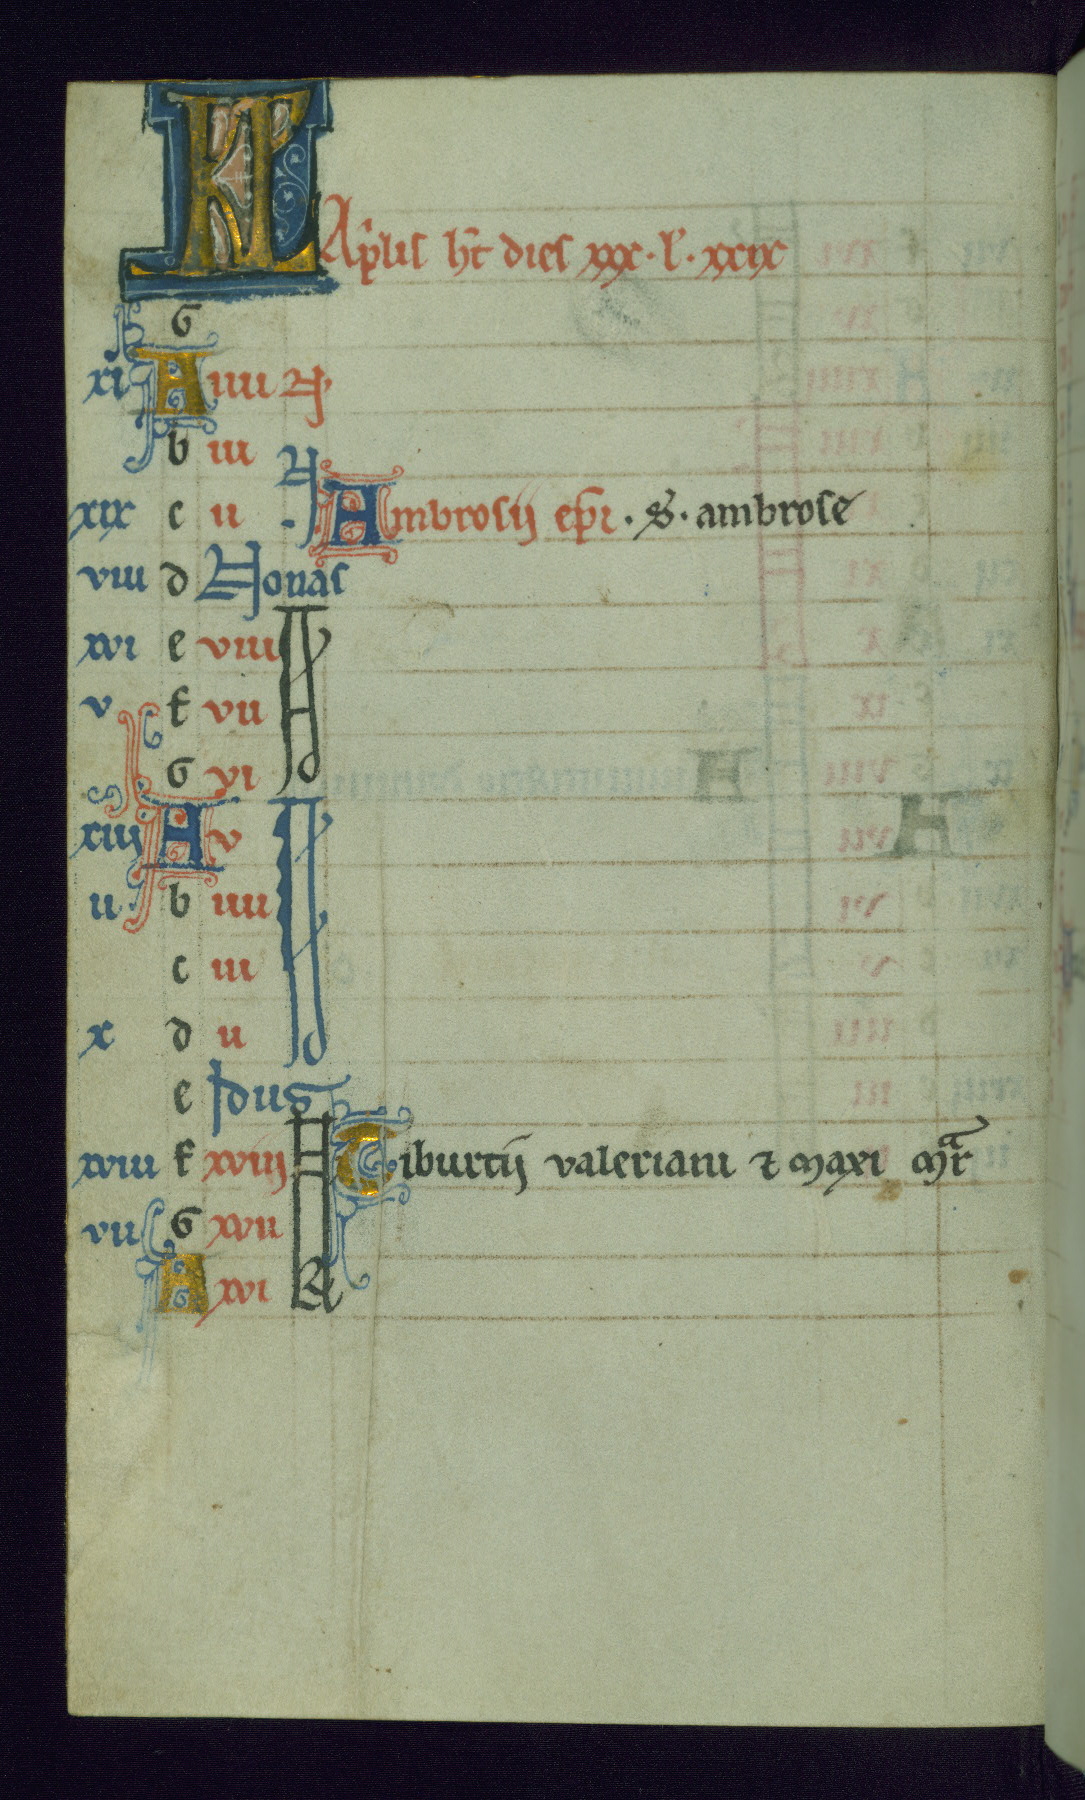 KL Ap̄lis ht̄ dies xxx · l' · xxix
G
xi A iiii N
b iii N
xix c ii Ambrosij ep̄i · S · ambrose
viii d Nonas
xvi e viii
v f vii
G vi
xiij A v
ii b iiii
c iii
x d ii
e Idus
xviii f xviij Tiburtij valeriani ⁊ maxi mr̄
vii G xvii
A xvi